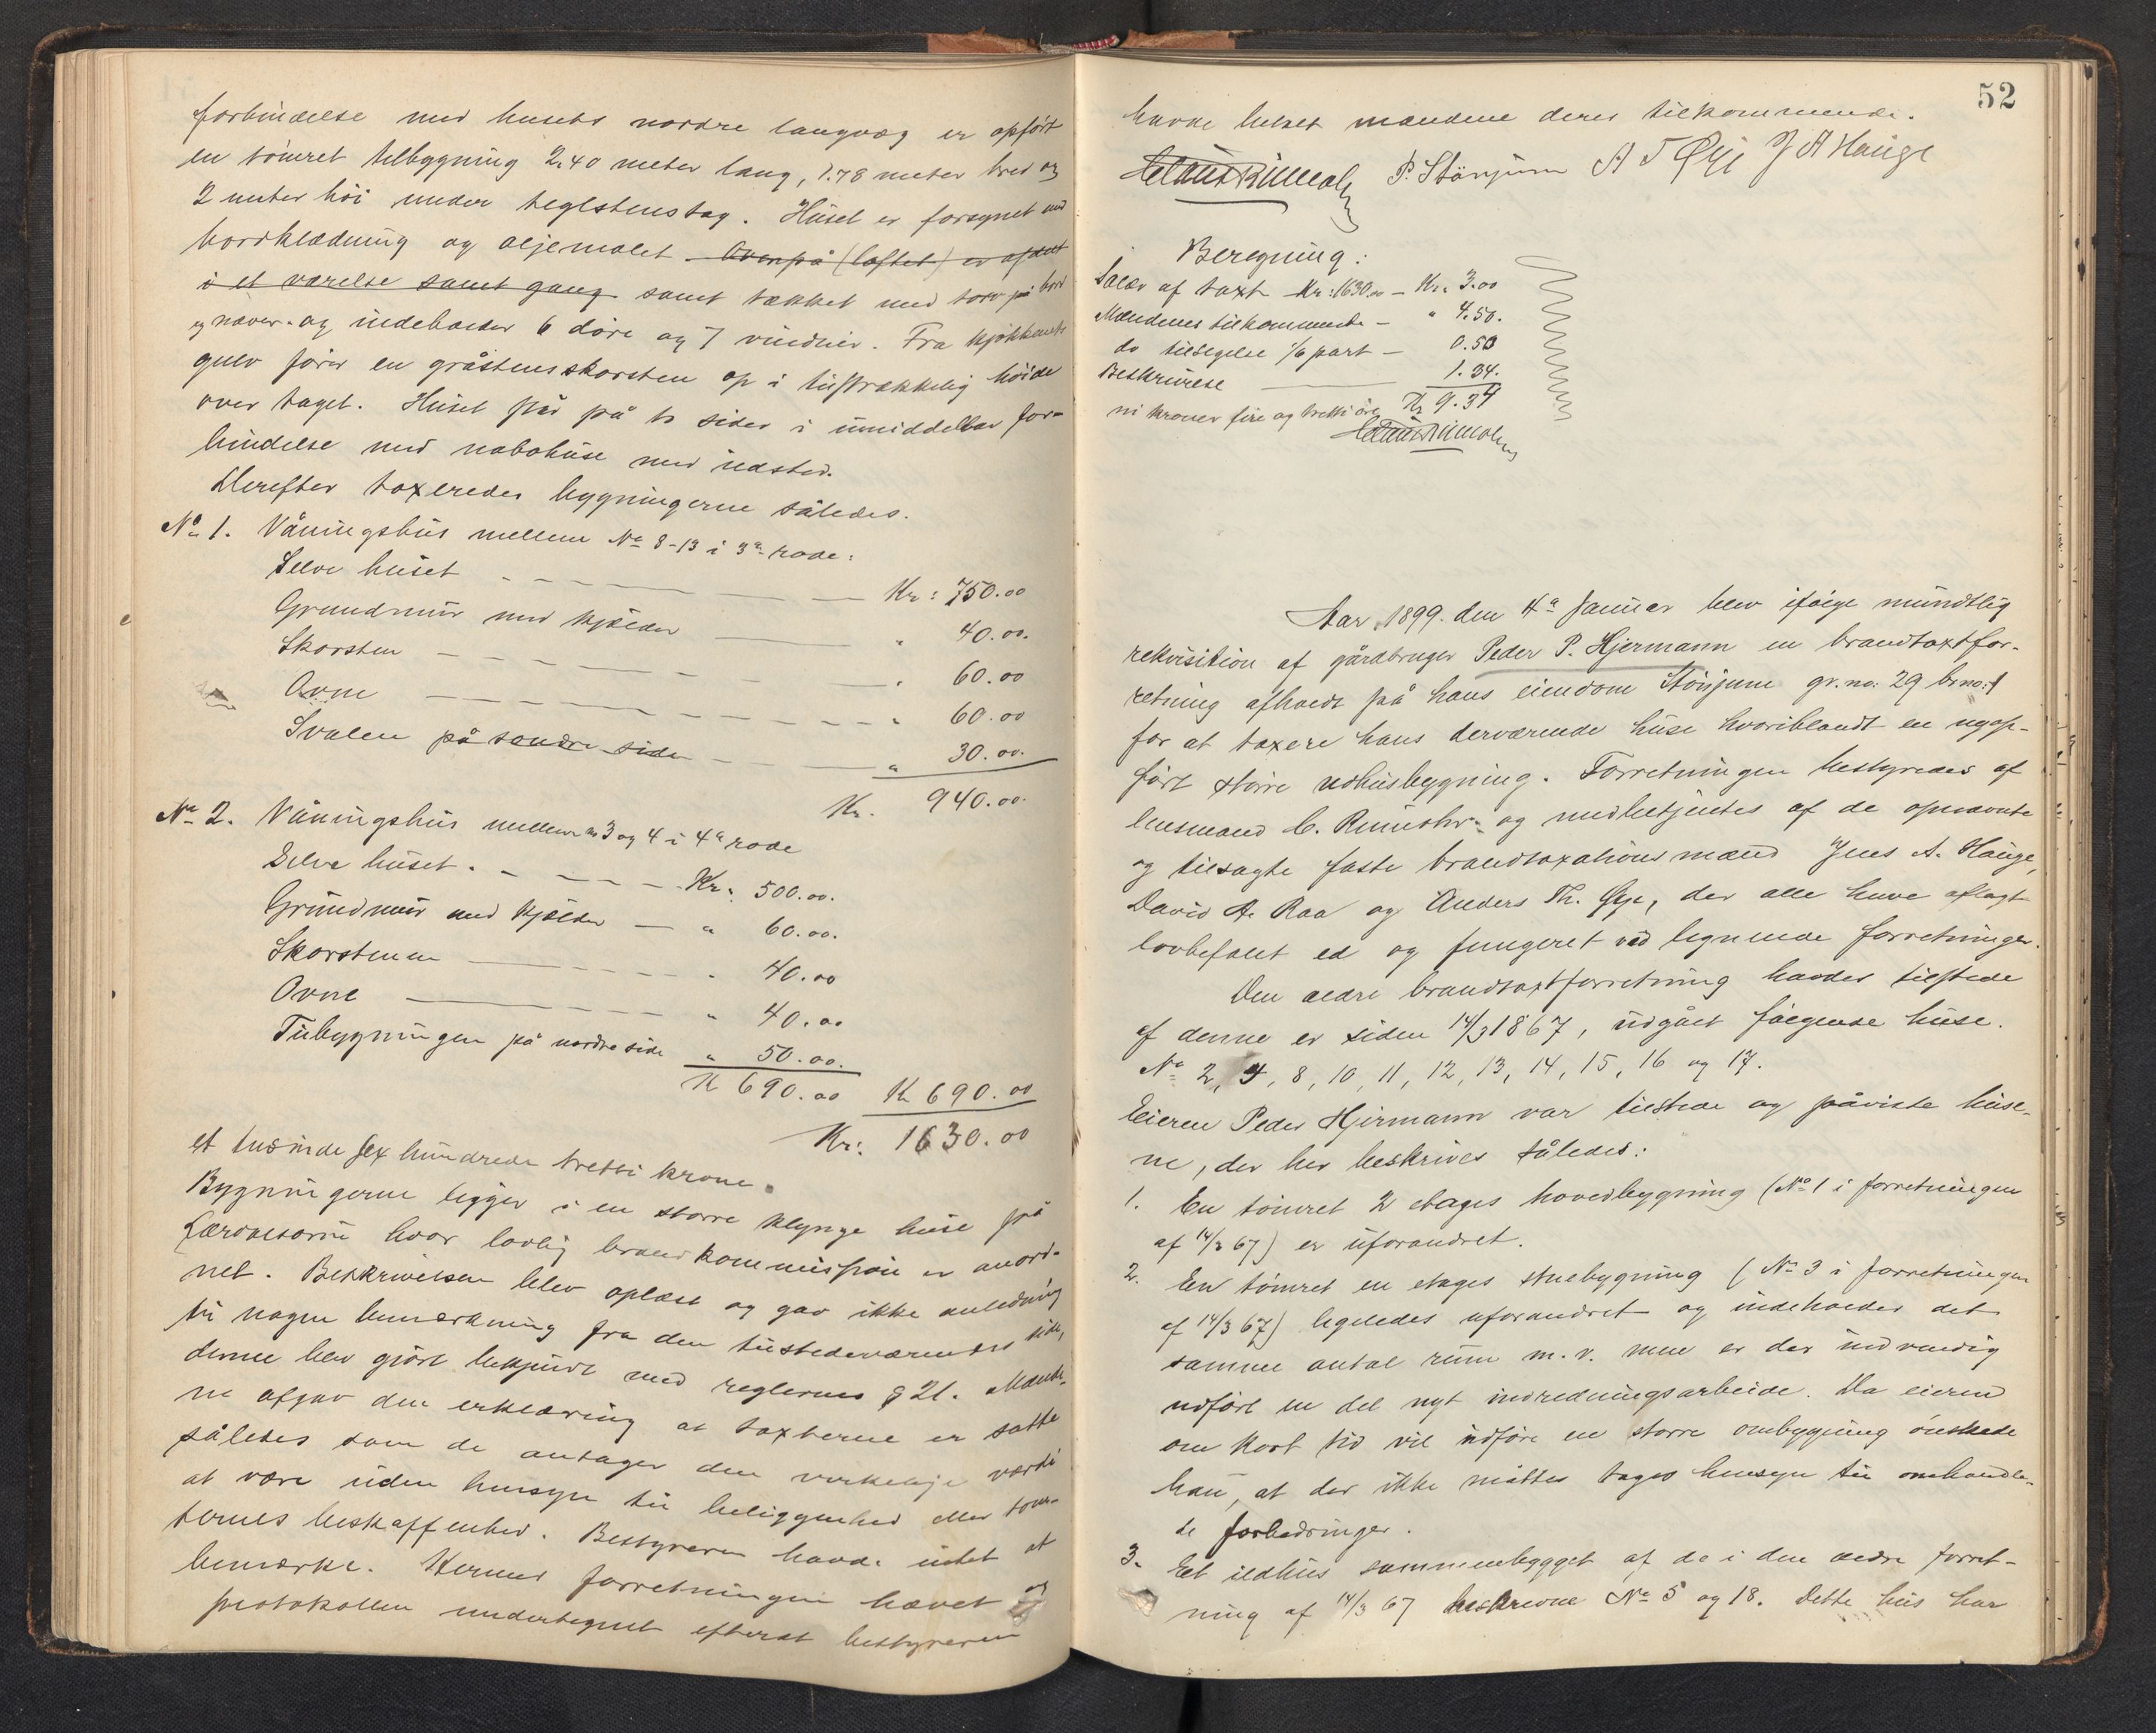 forbindelse med husets nordre langvæg er opført
en tømret tilbygning 2.40 meter lang, 1.78 meter bred og
2 meter høi under teglstenstag. Huset er forsynet med
bordklædning og oljemalet. Ovenpå (loftet) er afdelt
i et værelse samt gang samt tækket med torv på bord
og næver. og indeholder 6 døre og 7 vinduer. Fra kjøkkenets
gulv fører en gråstensskorsten op i tilstrækkelig høide
over taget. Huset står på to sider i umiddelbar for-
bindelse med nabohuse med ildsted.
Derefter taxeredes bygningerne således.
No 1. Våningshus mellem No 8-13 i 3die rode:
Selve huset Kr: 750.00
Grundmur med kjælder " 40.00.
Skorsten " 60.00
Ovne " 60.00
Svalen på søndre side " 30.00.
Kr. 940.00.
No 2. Våningshus mellem no 3 og 4 i 4de rode
Selve huset. Kr. 500.00.
Grundmur med kjælder " 60.00.
Skorstenen " 40.00
Ovne " 40.00
Tilbygningen på nordre side " 50.00.
Kr 690.00 Kr 690.00
Kr: 1630.00
et tusinde sex hundrede tretti krone.
Bygningerne ligger i en større klynge huse på
Lærdalsøren hvor lovlig brandkommission er anord-
net. Beskrivelsen blev oplæst og gav ikke anledning
til nogen bemærkning fra den tilstedeværendes side,
denne blev gjort bekjendt med reglernes § 21. Mænde-
ne afgav den erklæring at taxterne er satte
således som de antager den virkelige værdi
at være uden hensyn til beliggenhed eller tom-
ternes beskaffenhed. Bestyreren havde intet at
bemærke. Hermed forretningen hævet og
protokollen undertegnet efterat bestyreren
52
havde betalt mændene deres tilkommende.
P. Stønjum A T Øye J A Hauge
Beregning:
Salær af taxt Kr: 1630.00 — Kr. 3.00
Mændenes tilkommende — " 4.50.
do tilsigelse 1/6 part — 0.50
Beskrivelse 1.34.
ni kroner fire og tretti øre Kr 9.34
Aar 1899. den 4de Januar blev ifølge mundtlig
rekvisition af gårdbruger Peder P. Hjermann en brandtaxtfor-
retning afholdt på hans eiendom Stønjum gr.no: 29 br.no: 1
for at taxere hans derværende huse hvoriblandt en nyop-
ført større udhusbygning. Forretningen bestyredes af
lensmand C. Rumohr og medbetjentes af de opnævnte
og tilsagte faste brandtaxationsmænd Jens A. Hauge,
David A. Raa og Anders Th. Øye, der alle have aflagt
lovbefalet ed og fungeret ved lignende forretninger.
Den ældre brandtaxtforretning havdes tilstede
af denne er siden 14/3 1867, udgået følgende huse.
No 2, 4, 8, 10, 11, 12, 13, 14, 15, 16 og 17.
Eieren Peder Hjermann var tilstede og påviste huse-
ne, der her beskrives således:
1. En tømret 2 etages hovedbygning (No 1 i forretningen
af 14/3 67) er uforandret.
2. En tømret en etages stuebygning (No 3 i forretningen
af 14/3 67) ligeledes uforandret og indeholder det
samme antal rum m.v. men er der indvendig
udført en del nyt indredningsarbeide. Da eieren
om kort tid vil udføre en større ombygning ønskede
han, at der ikke måttes tages hensyn til omhandle-
de forbedringer.
3. Et ildhus sammenbygget af de i den ældre forret-
ning af 14/3 67 beskrevne No 5 og 18. Dette hus har